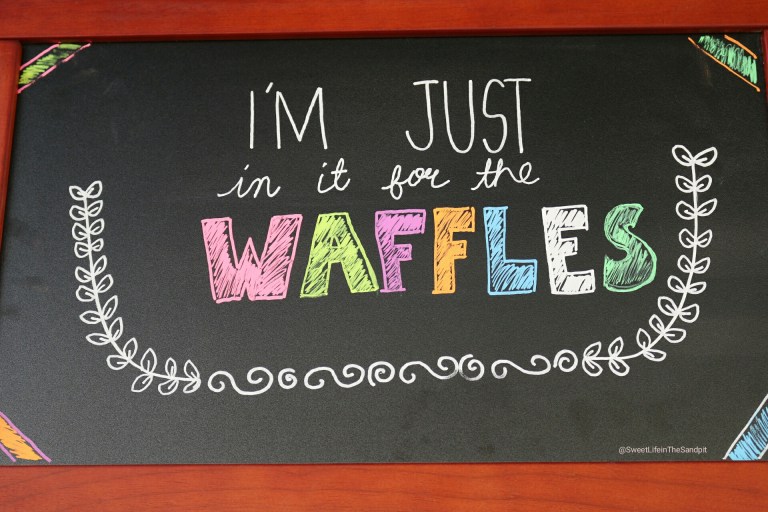 I'M JUST
in it for the
WAFFLES
@SweetLifeinTheSandpit